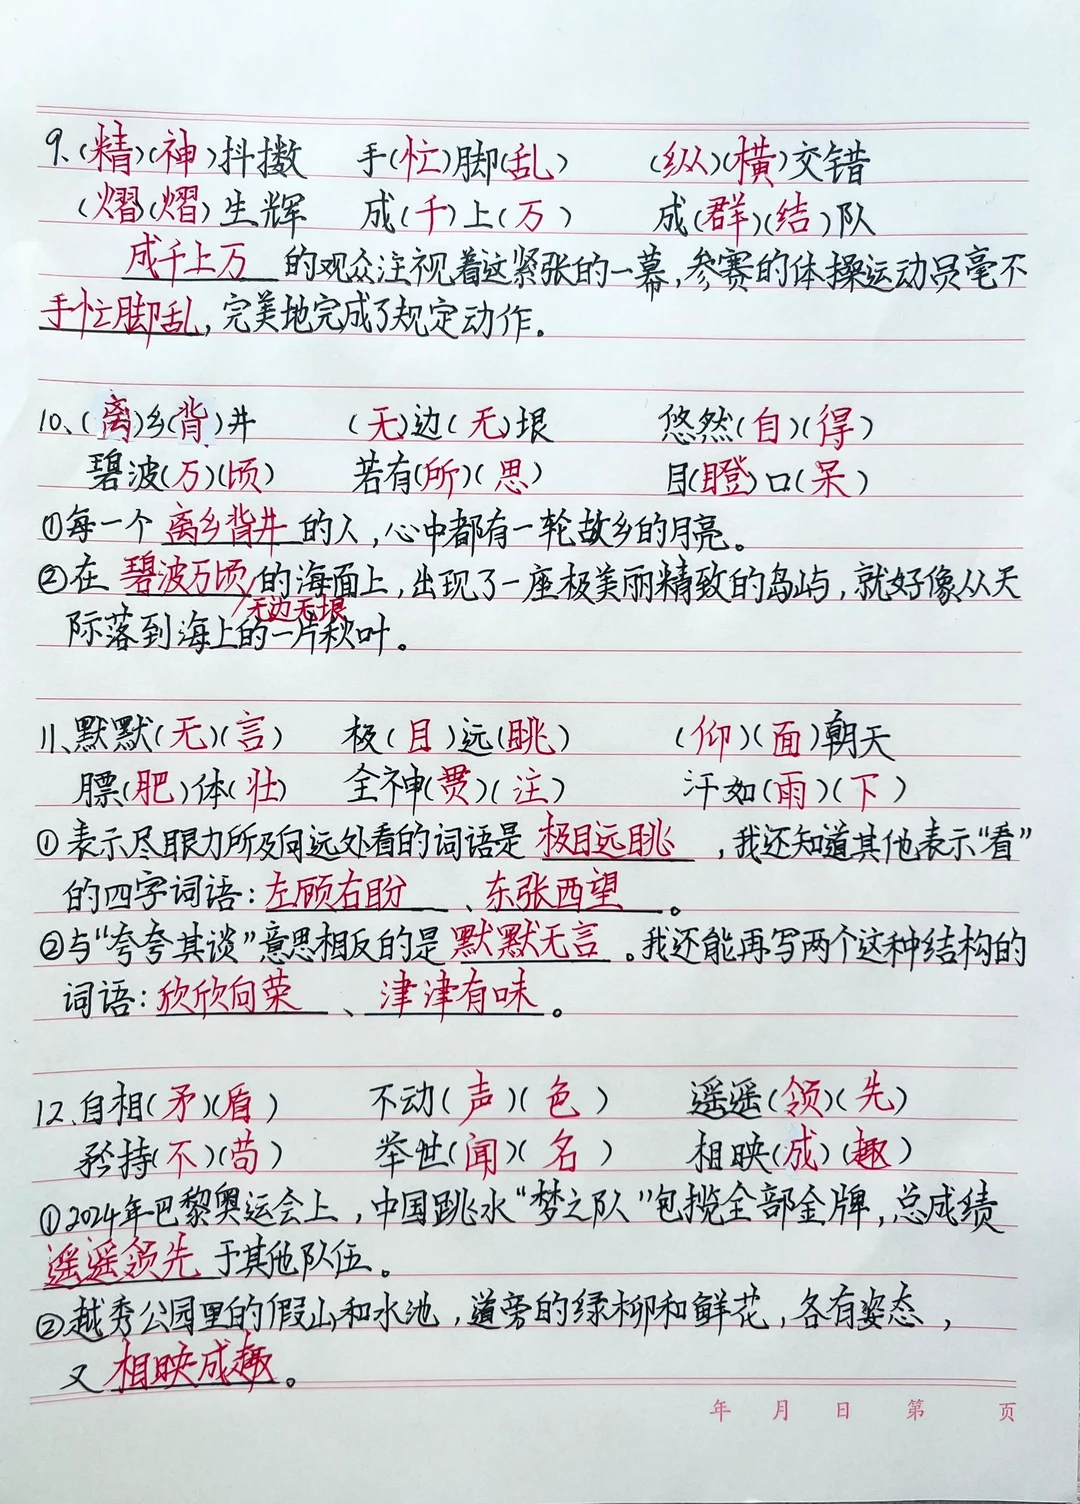 9、(精)(神)抖擞 手(忙)脚(乱) (纵)(横)交错
(熠)(熠)生辉 成(千)上(万) 成(群)(结)队
成千上万的观众注视着这紧张的一幕,参赛的体操运动员毫不
手忙脚乱,完美地完成了规定动作。
10、(离)乡(背)井 (无)边(无)垠 悠然(自)(得)
碧波(万)(顷) 若有(所)(思) 目(瞪)口(呆)
①每一个离乡背井的人,心中都有一轮故乡的月亮。
②在碧波万顷/的海面上,出现了一座极美丽精致的岛屿,就好像从天
无边无垠
际落到海上的一片秋叶。
11、默默(无)(言) 极(目)远(眺) (仰)(面)朝天
膘(肥)体(壮) 全神(贯)(注) 汗如(雨)(下)
①表示尽眼力所及向远处看的词语是极目远眺,我还知道其他表示“看”
的四字词语:左顾右盼、东张西望。
②与“夸夸其谈”意思相反的是默默无言。我还能再写两个这种结构的
词语:欣欣向荣、津津有味。
12、自相(矛)(盾) 不动(声)(色) 遥遥(领)(先)
矜持(不)(苟) 举世(闻)(名) 相映(成)(趣)
①2024年巴黎奥运会上,中国跳水“梦之队”包揽全部金牌,总成绩
遥遥领先于其他队伍。
②越秀公园里的假山和水池,道旁的绿柳和鲜花,各有姿态,
又相映成趣。
年 月 日 第 页